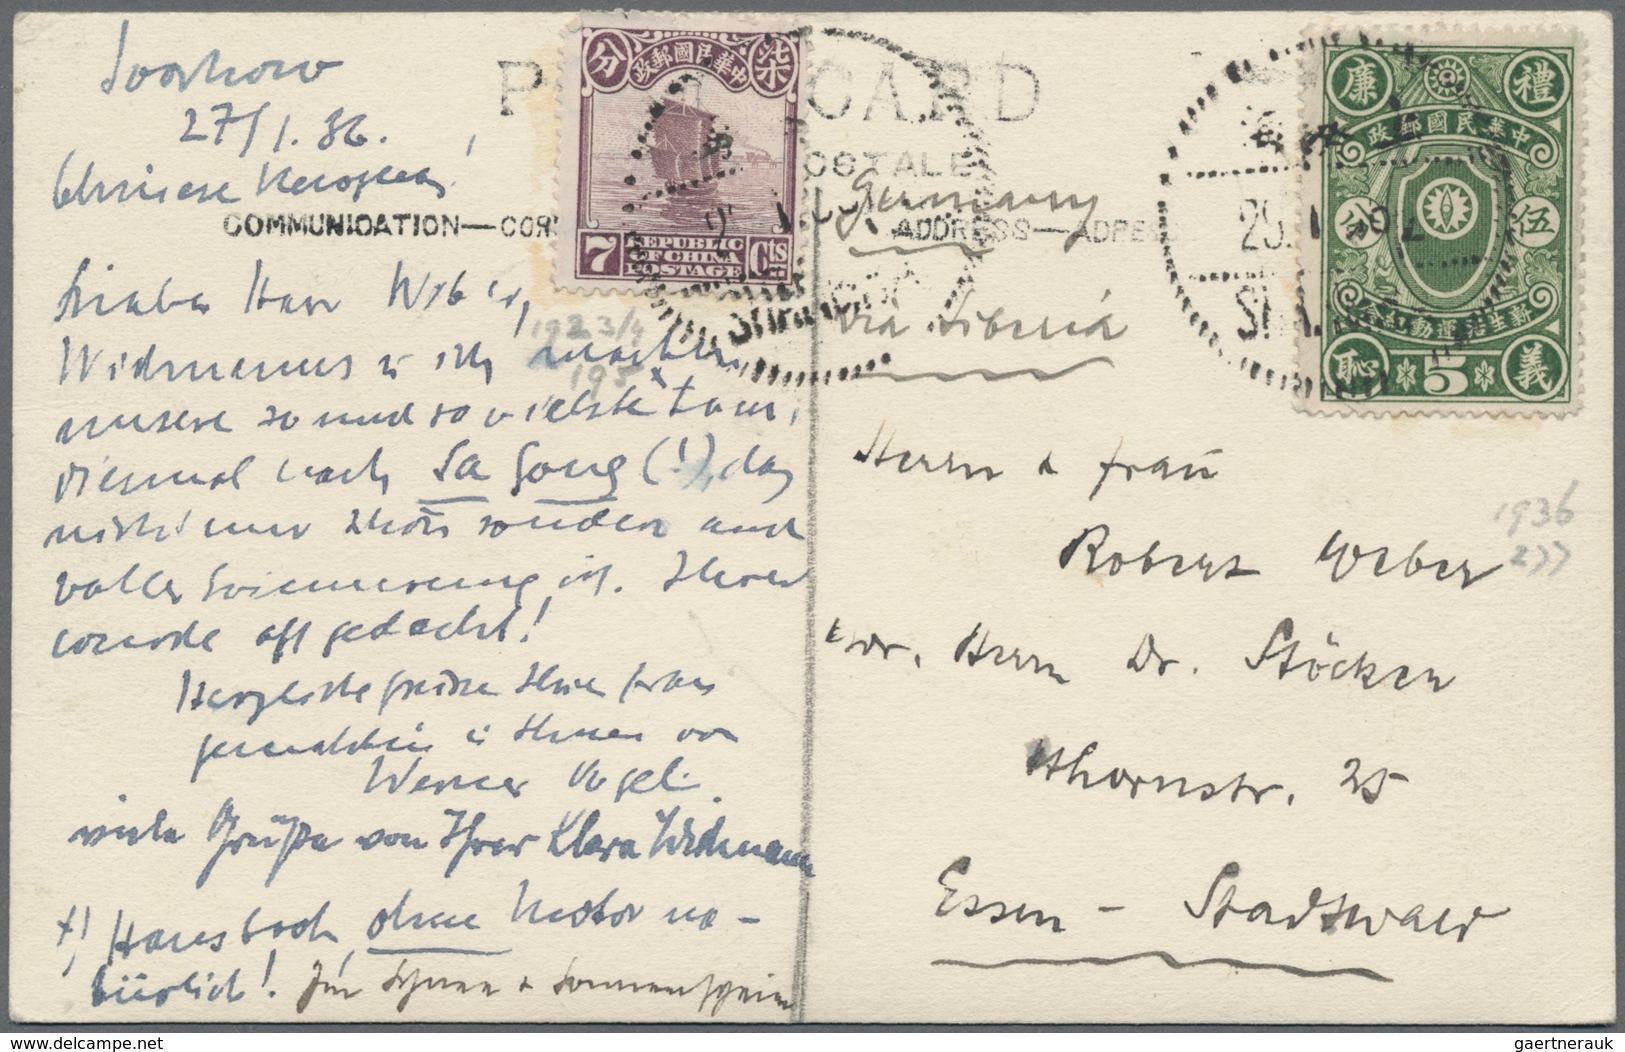 Soochow
27/1.36.
Chinese Neujahr!
POST CARD
POSTALE
COMMUNICATION—COR
ADDRESS—ADRESS
Germany
via Siberia
Lieber Herr Weber,
Widmanns u ich machten
unsere so und so vielste Tour,
diesmal nach Sa Gong (!), das
nicht nur schön sondern auch
voller Erinnerung ist. Ihrer
wurde oft gedacht!
Herzliche Grüsse Ihrer Frau
gemahlin u Ihnen von
Werner Vogel.
viele Grüße von Ihrer Klara Widmann
+) Hausboot, ohne Motor na-
türlich! Schnee + Sonnenschein
1923/4
195
柒 分
中華民國郵政
7 Cts
REPUBLIC
OF CHINA
POSTAGE
禮 廉
中華民國郵政
伍 分
新生活運動紀念
義 恥
5
25. 1
Herrn & Frau
Robert Weber
1936
277
Adr. Herrn Dr. Stöcker
Ahornstr. 25
Essen - Stadtwald
gaertnerauk